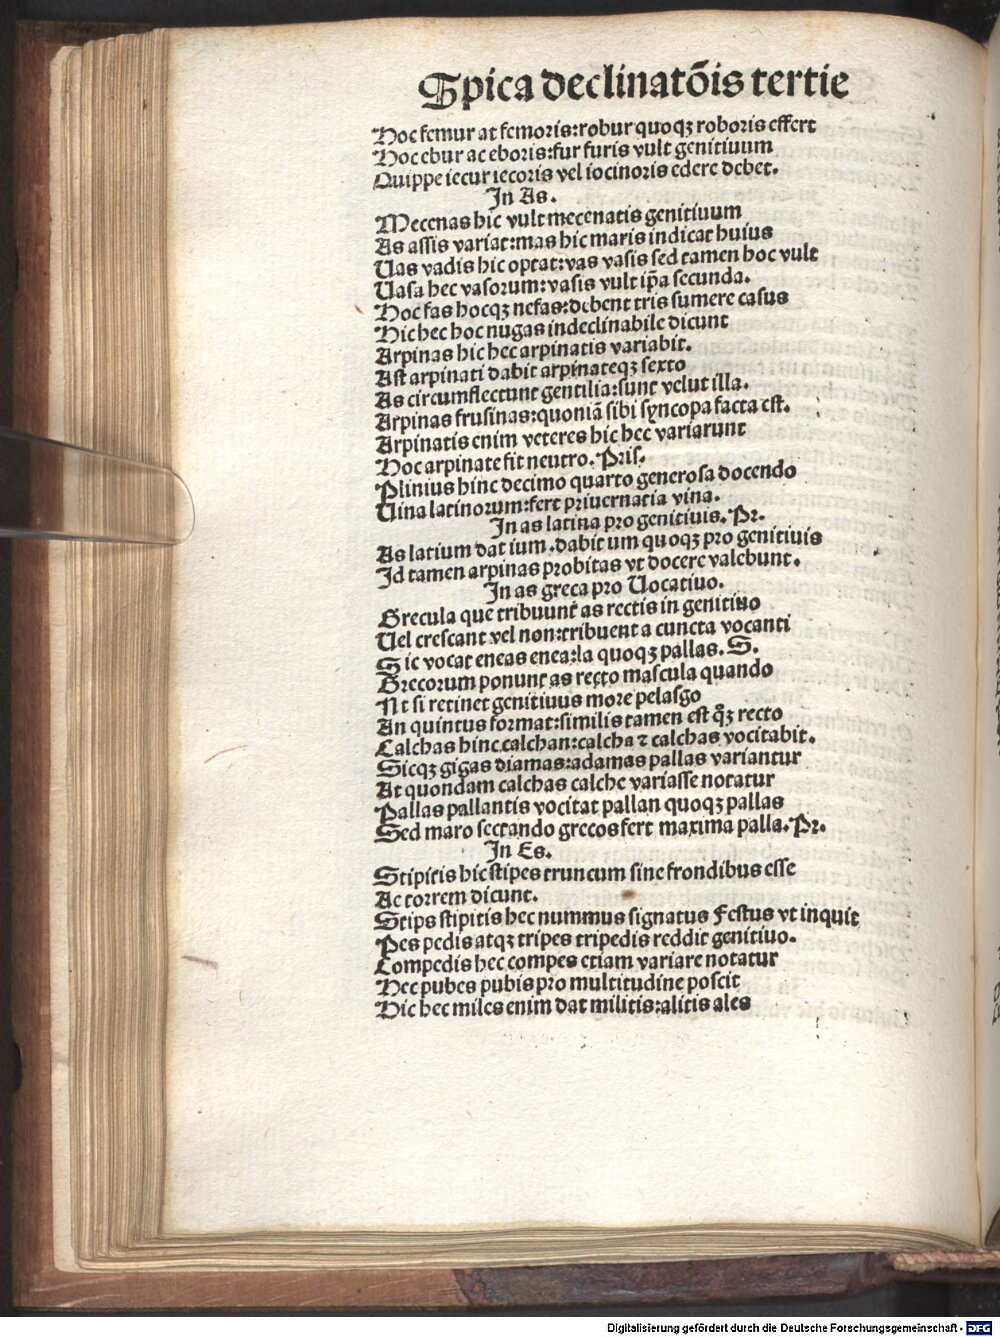 Spica declinatōis tertie
Hoc femur at femoris:robur quoqꝫ roboris effert
Hoc ebur ac eboris:fur furis vult genitiuum
Quippe iecur iecoris vel iocinoris edere debet.
In As.
Mecenas hic vult mecenatis genitiuum
As assis variat:mas hic maris indicat huius
Uas vadis hic optat:vas vasis sed tamen hoc vult
Uasa hec vasorum:vasis vult ip̄a secunda.
Hoc fas hocqꝫ nefas:debent tris sumere casus
Hic hec hoc nugas indeclinabile dicunt
Arpinas hic hec arpinatis variabit.
Ast arpinati dabit arpinateqꝫ sexto
As circumflectunt gentilia:sunt velut illa.
Arpinas frusinas:quoniā sibi syncopa facta est.
Arpinatis enim veteres hic hec variarunt
Hoc arpinate fit neutro. Pris.
Plinius hinc decimo quarto generosa docendo
Uina latinorum:fert priuernatia vina.
In as latina pro genitiuis. Pr.
As latium dat ium.dabit um quoqꝫ pro genitiuis
Id tamen arpinas probitas vt docere valebunt.
In as greca pro Uocatiuo.
Grecula que tribuunt as rectis in genitiuo
Uel crescant vel non:tribuent a cuncta vocanti
Sic vocat eneas enea:la quoqꝫ pallas. S.
Grecorum ponunt as recto mascula quando
Nt si retinet genitiuus more pelasgo
An quintus format:similis tamen est qꝫ recto
Calchas hinc calchan:calcha ⁊ calchas vocitabit.
Sicqꝫ gigas diamas:adamas pallas variantur
At quondam calchas calche variasse notatur
Pallas pallantis vocitat pallan quoqꝫ pallas
Sed maro sectando grecos fert maxima palla. Pr.
In Es.
Stipitis hic stipes truncum sine frondibus esse
Ac torrem dicunt.
Stips stipitis hec nummus signatus Festus vt inquit
Pes pedis atqꝫ tripes tripedis reddit genitiuo.
Compedis hec compes etiam variare notatur
Hec pubes pubis pro multitudine poscit
Hic hec miles enim dat militis:alitis ales
Digitalisierung gefördert durch die Deutsche Forschungsgemeinschaft - DFG